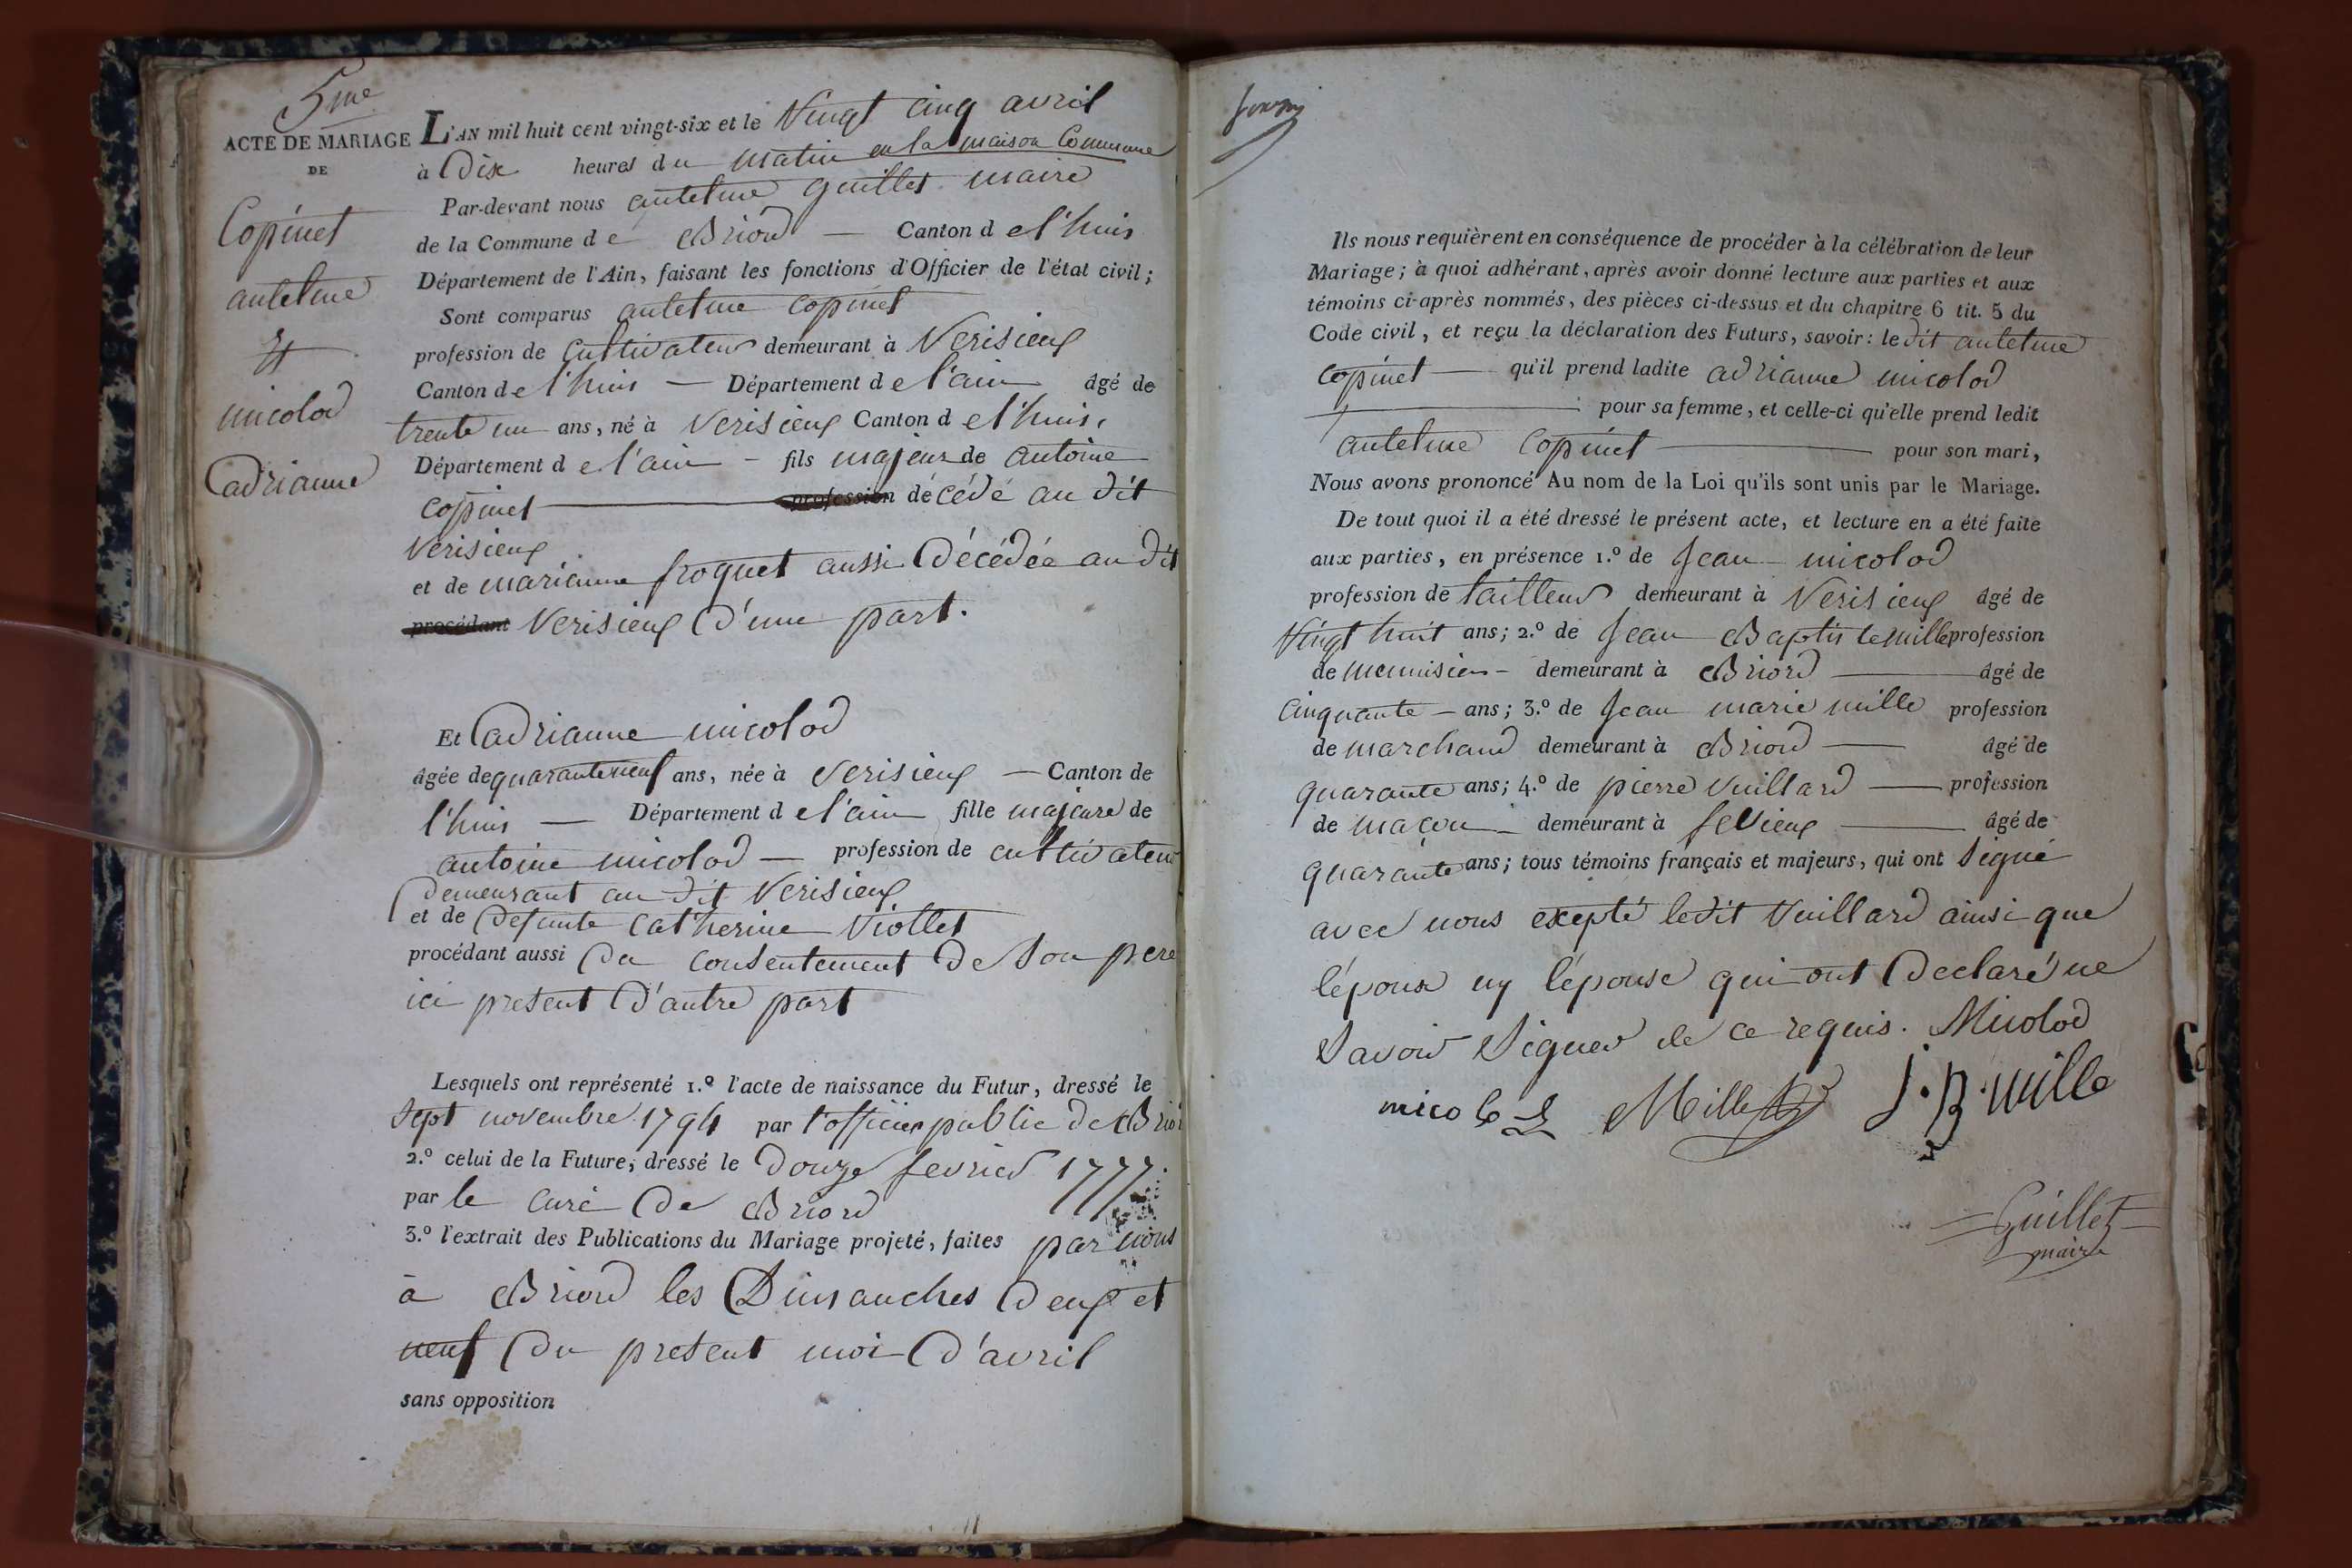 5me
ACTE DE MARIAGE
DE
Copinet
antelme
et
micolod
adrianne
L'AN mil huit cent vingt-six et le Vingt cinq avril
à Dix heures du matin en la maison Commune
Par-devant nous antelme guillet maire
de la Commune de Briord — Canton de l'huis
Département de l'Ain, faisant les fonctions d'Officier de l'état civil;
Sont comparus antelme copinet
profession de cultivateur demeurant à Verisieux
Canton de l'huis — Département de l'ain âgé de
trente un ans, né à Verisieux Canton de l'huis,
Département de l'ain — fils majeur de antoine
copinet — profession décédé au dit
Verisieux
et de marianne froquet aussi Décédée au dit
procédant Verisieux D'une part.
Et adrianne micolod
âgée de quarante neuf ans, née à Verisieux — Canton de
l'huis — Département de l'ain fille majeure de
antoine micolod — profession de cultivateur
Demeurant au dit Verisieux
et de Defunte Catherine Viollet
procédant aussi Du consentement De Son pere
ici present D'autre part
Lesquels ont représenté 1.º l'acte de naissance du Futur, dressé le
Sept novembre 1794 par l'officier public de Brior
2.º celui de la Future, dressé le Douze fevrier 1777.
par le curé De Briord
3.º l'extrait des Publications du Mariage projeté, faites par nous
à Briord les Dimanches Deux et
neuf Du present moi D'avril
sans opposition
Ils nous requièrent en conséquence de procéder à la célébration de leur
Mariage; à quoi adhérant, après avoir donné lecture aux parties et aux
témoins ci-après nommés, des pièces ci-dessus et du chapitre 6 tit. 5 du
Code civil, et reçu la déclaration des Futurs, savoir: le dit antelme
copinet — qu'il prend ladite adrianne micolod
— pour sa femme, et celle-ci qu'elle prend ledit
antelme copinet — pour son mari,
Nous avons prononcé Au nom de la Loi qu'ils sont unis par le Mariage.
De tout quoi il a été dressé le présent acte, et lecture en a été faite
aux parties, en présence 1.º de Jean micolod
profession de tailleur demeurant à Verisieux âgé de
Vingt huit ans; 2.º de Jean Baptiste mille profession
de menuisier — demeurant à Briord — âgé de
cinquante — ans; 3.º de Jean marie mille profession
de marchand demeurant à Briord — âgé de
quarante ans; 4.º de pierre Vuillard — profession
de maçon — demeurant à — âgé de
quarante ans; tous témoins français et majeurs, qui ont Signé
avec nous exepté ledit Vuillard ainsi que
l'époux ny l'épouse qui ont Declaré ne
Savoir Signer de ce requis. Micolod
Mille J. B. mille
Guillet
maire